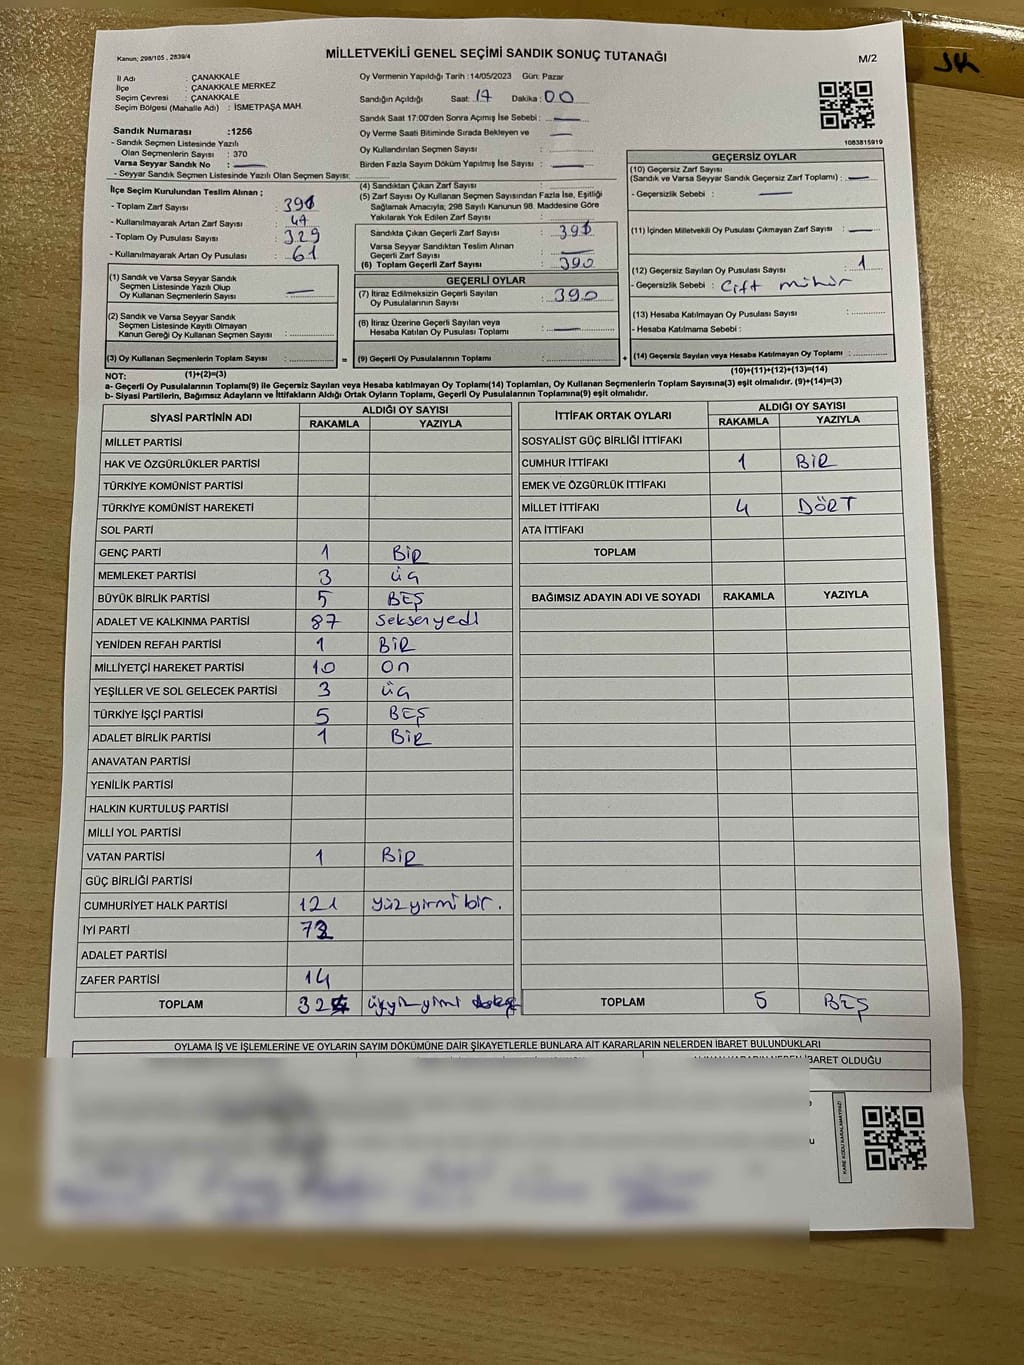 Kanun; 298/105 , 2839/4
MİLLETVEKİLİ GENEL SEÇİMİ SANDIK SONUÇ TUTANAĞI
M/2
İl Adı : ÇANAKKALE
İlçe : ÇANAKKALE MERKEZ
Seçim Çevresi : ÇANAKKALE
Seçim Bölgesi (Mahalle Adı) : İSMETPAŞA MAH.
Sandık Numarası :1256
- Sandık Seçmen Listesinde Yazılı
Olan Seçmenlerin Sayısı : 370
Varsa Seyyar Sandık No :
- Seyyar Sandık Seçmen Listesinde Yazılı Olan Seçmen Sayısı:
Oy Vermenin Yapıldığı Tarih :14/05/2023 Gün: Pazar
Sandığın Açıldığı Saat: 17 Dakika: 00
Sandık Saat 17:00'den Sonra Açımış İse Sebebi :
Oy Verme Saati Bitiminde Sırada Bekleyen ve
Oy Kullandırılan Seçmen Sayısı :
Birden Fazla Sayım Döküm Yapılmış İse Sayısı :
1083815919
İlçe Seçim Kurulundan Teslim Alınan ;
- Toplam Zarf Sayısı :
- Kullanılmayarak Artan Zarf Sayısı : 47
- Toplam Oy Pusulası Sayısı : 329
- Kullanılmayarak Artan Oy Pusulası : 61
(1) Sandık ve Varsa Seyyar Sandık
Seçmen Listesinde Yazılı Olup
Oy Kullanan Seçmenlerin Sayısı :
(2) Sandık ve Varsa Seyyar Sandık
Seçmen Listesinde Kayıtlı Olmayan
Kanun Gereği Oy Kullanan Seçmen Sayısı :
(3) Oy Kullanan Seçmenlerin Toplam Sayısı :
(4) Sandıktan Çıkan Zarf Sayısı :
(5) Zarf Sayısı Oy Kullanan Seçmen Sayısından Fazla İse, Eşitliği
Sağlamak Amacıyla; 298 Sayılı Kanunun 98. Maddesine Göre
Yakılarak Yok Edilen Zarf Sayısı :
Sandıkta Çıkan Geçerli Zarf Sayısı :
Varsa Seyyar Sandıktan Teslim Alınan
Geçerli Zarf Sayısı :
(6) Toplam Geçerli Zarf Sayısı : 390
GEÇERLİ OYLAR
(7) İtiraz Edilmeksizin Geçerli Sayılan
Oy Pusulalarının Sayısı : 390
(8) İtiraz Üzerine Geçerli Sayılan veya
Hesaba Katılan Oy Pusulası Toplamı :
= (9) Geçerli Oy Pusulalarının Toplamı :
GEÇERSİZ OYLAR
(10) Geçersiz Zarf Sayısı
(Sandık ve Varsa Seyyar Sandık Geçersiz Zarf Toplamı) :
- Geçersizlik Sebebi :
(11) İçinden Milletvekili Oy Pusulası Çıkmayan Zarf Sayısı :
(12) Geçersiz Sayılan Oy Pusulası Sayısı : 1
- Geçersizlik Sebebi : Çift mühür
(13) Hesaba Katılmayan Oy Pusulası Sayısı :
- Hesaba Katılmama Sebebi :
+ (14) Geçersiz Sayılan veya Hesaba Katılmayan Oy Toplamı :
NOT: (1)+(2)=(3)
(10)+(11)+(12)+(13)=(14)
a- Geçerli Oy Pusulalarının Toplamı(9) ile Geçersiz Sayılan veya Hesaba katılmayan Oy Toplamı(14) Toplamları, Oy Kullanan Seçmenlerin Toplam Sayısına(3) eşit olmalıdır. (9)+(14)=(3)
b- Siyasi Partilerin, Bağımsız Adayların ve İttifakların Aldığı Ortak Oyların Toplamı, Geçerli Oy Pusulalarının Toplamına(9) eşit olmalıdır.
SİYASİ PARTİNİN ADI ALDIĞI OY SAYISI
RAKAMLA YAZIYLA
MİLLET PARTİSİ
HAK VE ÖZGÜRLÜKLER PARTİSİ
TÜRKİYE KOMÜNİST PARTİSİ
TÜRKİYE KOMÜNİST HAREKETİ
SOL PARTİ
GENÇ PARTİ 1 BİR
MEMLEKET PARTİSİ 3 üç
BÜYÜK BİRLİK PARTİSİ 5 BEŞ
ADALET VE KALKINMA PARTİSİ 87 seksenyedi
YENİDEN REFAH PARTİSİ 1 BİR
MİLLİYETÇİ HAREKET PARTİSİ 10 on
YEŞİLLER VE SOL GELECEK PARTİSİ 3 üç
TÜRKİYE İŞÇİ PARTİSİ 5 BEŞ
ADALET BİRLİK PARTİSİ 1 BİR
ANAVATAN PARTİSİ
YENİLİK PARTİSİ
HALKIN KURTULUŞ PARTİSİ
MİLLİ YOL PARTİSİ
VATAN PARTİSİ 1 BİR
GÜÇ BİRLİĞİ PARTİSİ
CUMHURİYET HALK PARTİSİ 121 yüzyirmibir.
İYİ PARTİ
ADALET PARTİSİ
ZAFER PARTİSİ 14
TOPLAM
İTTİFAK ORTAK OYLARI ALDIĞI OY SAYISI
RAKAMLA YAZIYLA
SOSYALİST GÜÇ BİRLİĞİ İTTİFAKI
CUMHUR İTTİFAKI 1 BİR
EMEK VE ÖZGÜRLÜK İTTİFAKI
MİLLET İTTİFAKI 4 DÖRT
ATA İTTİFAKI
TOPLAM
BAĞIMSIZ ADAYIN ADI VE SOYADI RAKAMLA YAZIYLA
TOPLAM 5 BEŞ
OYLAMA İŞ VE İŞLEMLERİNE VE OYLARIN SAYIM DÖKÜMÜNE DAİR ŞİKAYETLERLE BUNLARA AİT KARARLARIN NELERDEN İBARET BULUNDUKLARI
İBARET OLDUĞU
KARE KODU KARALAMAYINIZ!